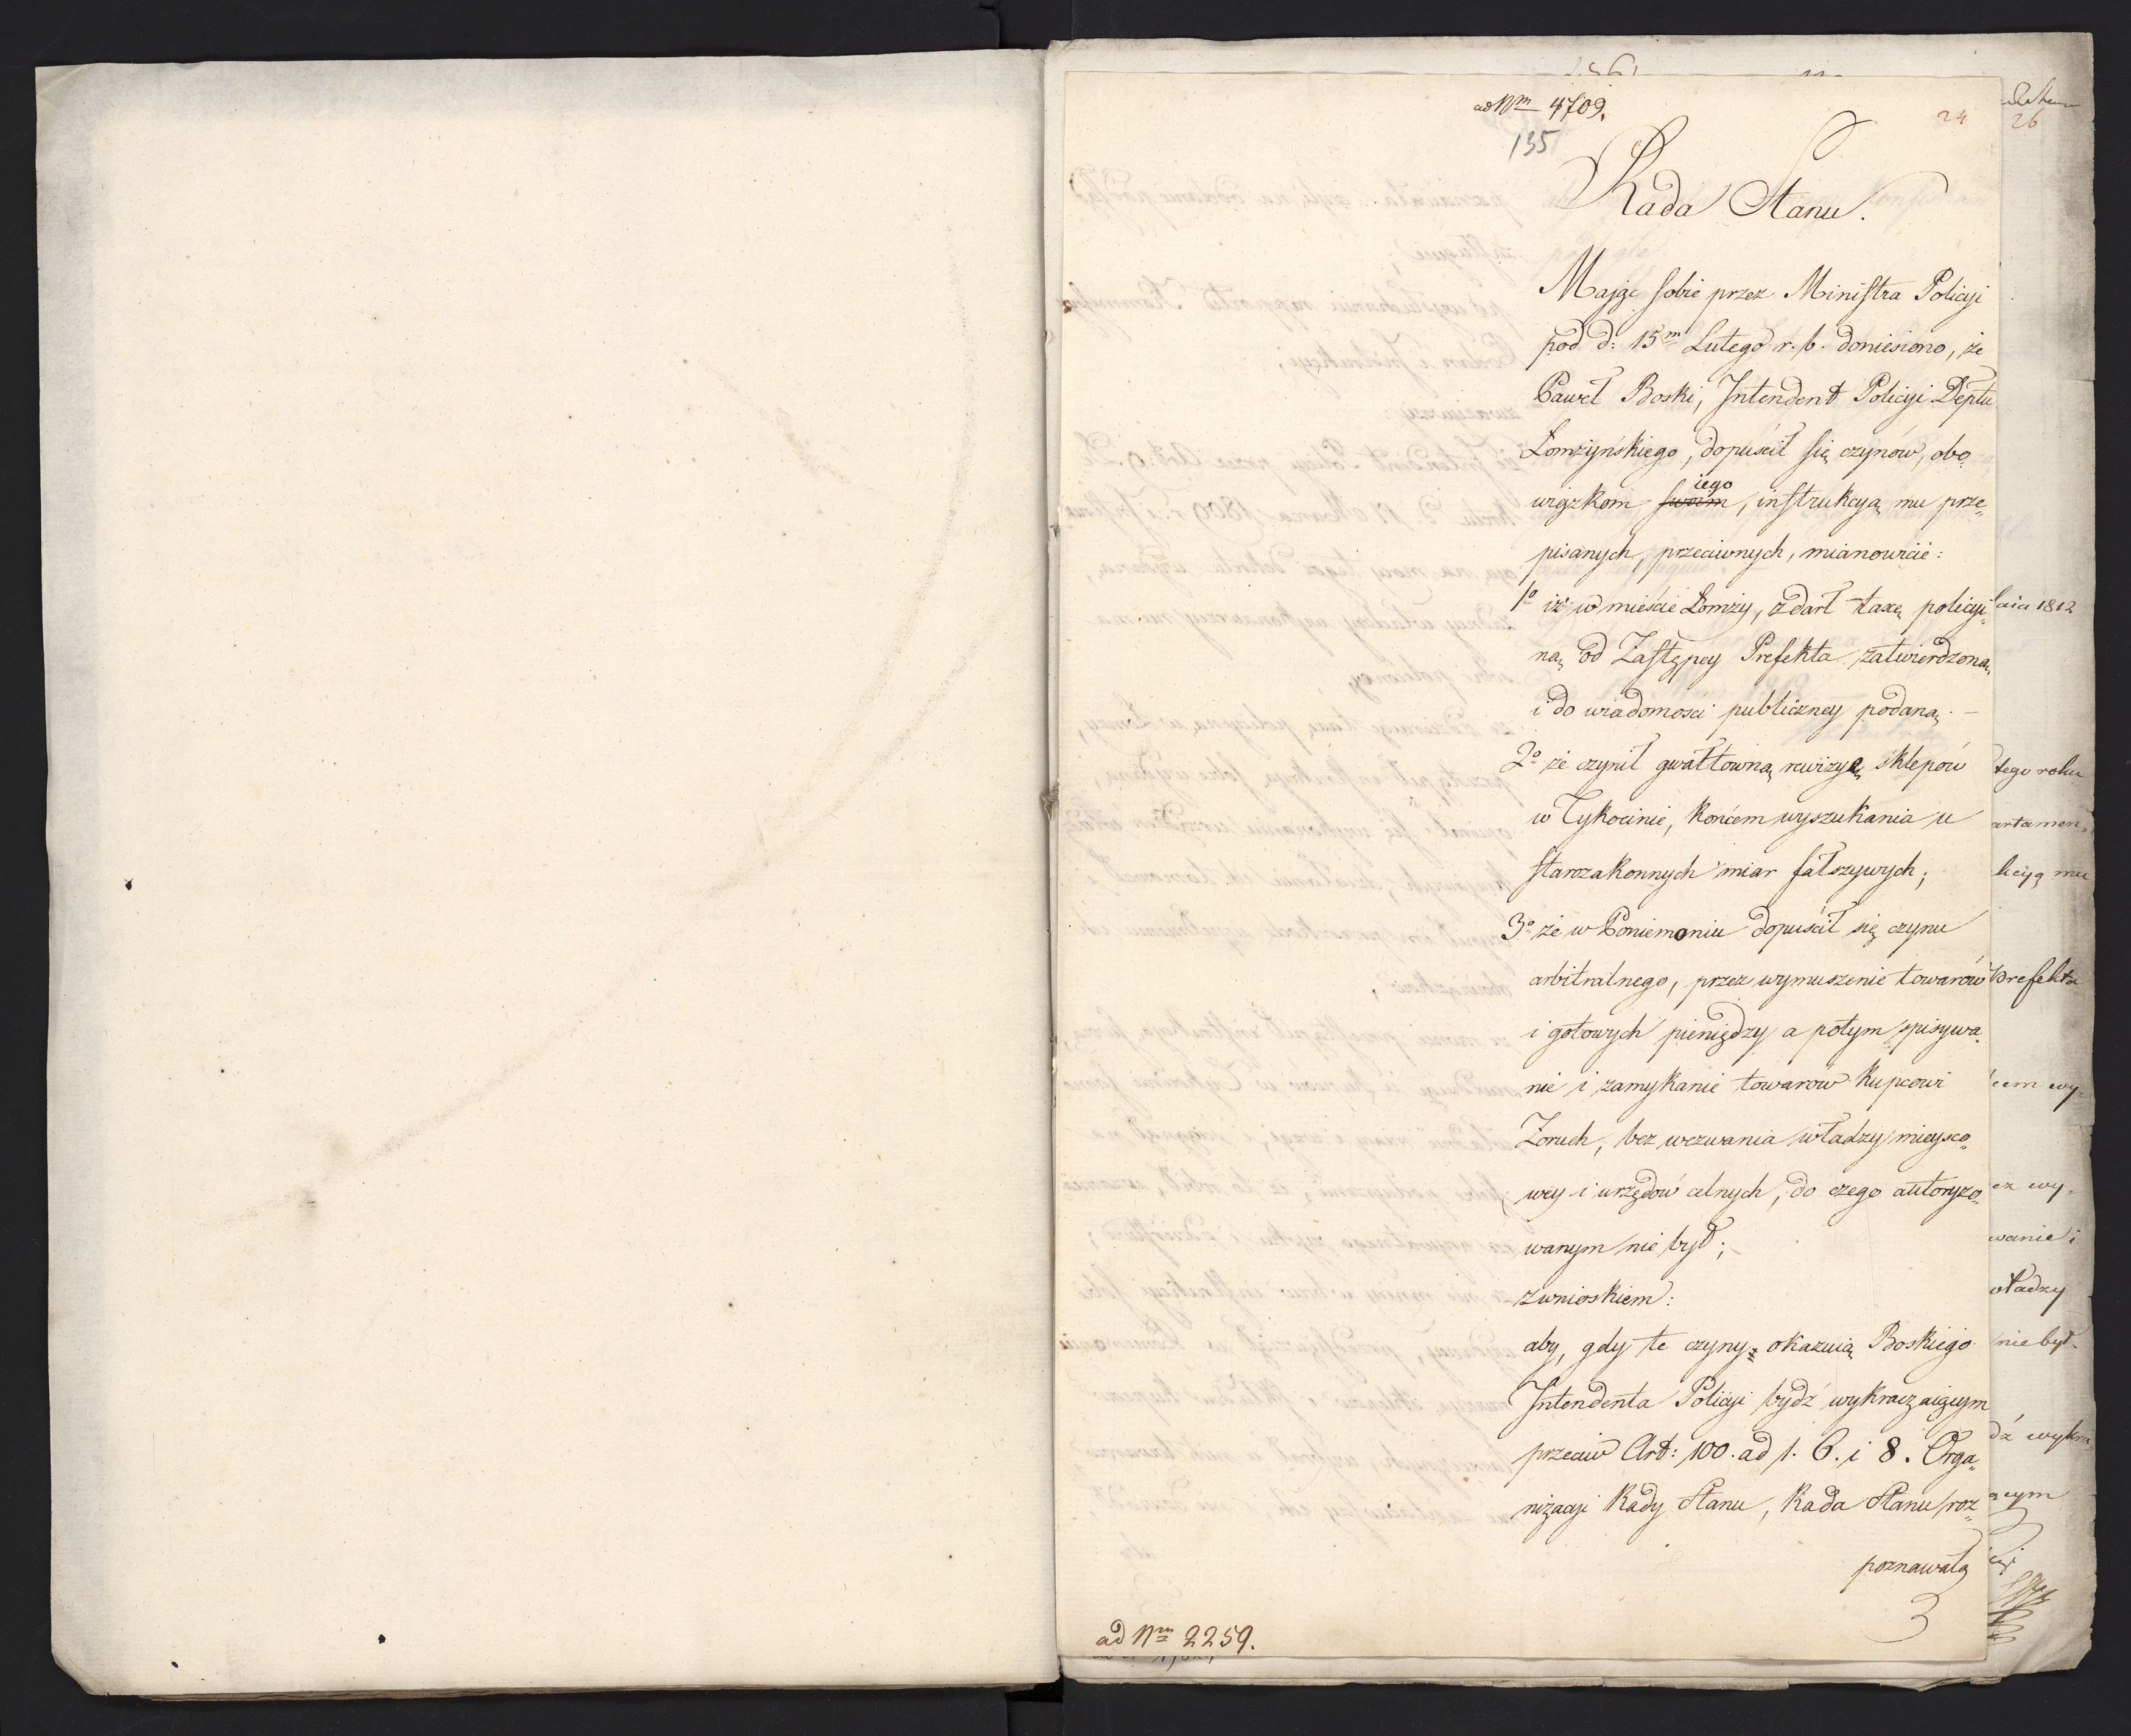 ad Nm 4709.
135
24
26
Rada Stanu.
Maiąc sobie przez Ministra Policyi
pod d: 15m Lutego r. b. doniesiono, że
Paweł Boski, Intendent Policyi Deptu
Łomżyńskiego, dopuścił się czynów, obo„
wiązkom swoim iego, instrukcyą mu prze„
pisanych, przeciwnych, mianowicie:
1o iż w mieście Łomży, zdarł taxę policyi„
ną od Zastępcy Prefekta zatwierdzoną,
i do wiadomości publiczney podaną. –
2o że czynił gwałtowną rewizyę sklepów
w Tykocinie, końcem wyszukania u
starozakonnych miar fałszywych;
3o że w Poniemoniu dopuścił się czynu
arbitralnego, przez wymuszenie towarów
i gotowych pieniędzy a potym spisywa„
nie i zamykanie towarów kupcowi
Zoruch, bez wezwania władzy mieysco„
wey i urzędów celnych, do czego autoryzo„
wanym nie był;
z wnioskiem:
aby, gdy te czyny okazuią Boskiego
Intendenta Policyi bydź wykraczaiącym
przeciw Art: 100. ad 1. 6. i 8. Orga„
nizacyi Rady Stanu, Rada Stanu roz„
poznawała
ad Nm 2259.
aia 1812
tego roku
artamen„
licyą mu
Prefekta
cem wy„
ez wy„
wanie i
władzy
nie był.
dź wykra„
ącym